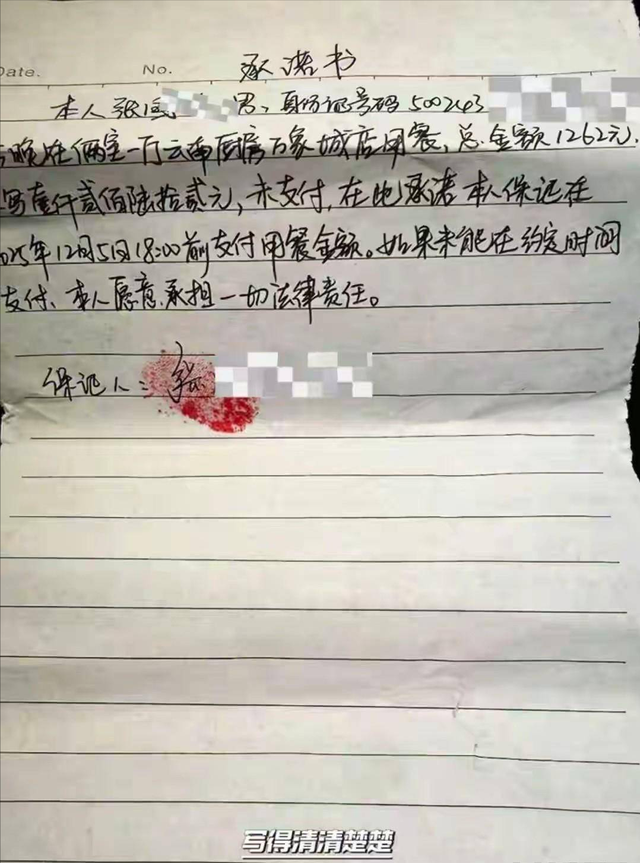 Date.
No.
承诺书
本人张 男、身份证号码500243
晚在俩室一厅云南厨房万象城店用餐，总金额1262元.
写壹仟贰佰陆拾贰元，未支付，在此承诺本人保证在
025年12月5日18:00前支付用餐金额。如果未能在约定时间
支付、本人愿意承担一切法律责任。
保证人：张
写得清清楚楚